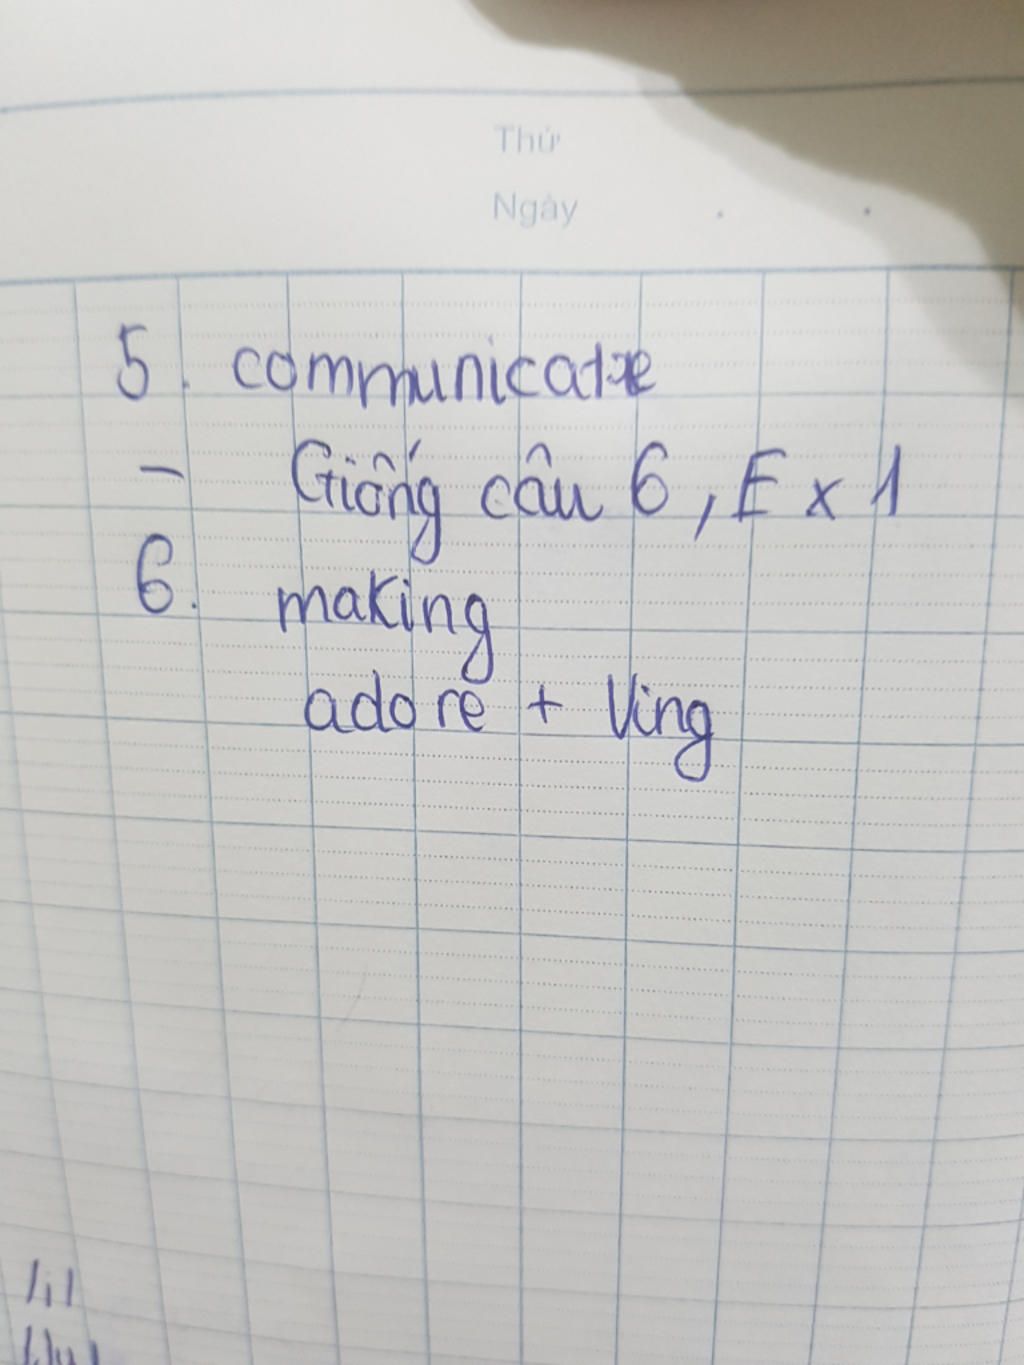 Thứ
Ngày
5. communicate
- Giống câu 6, Ex 1
6. making
adore + Ving